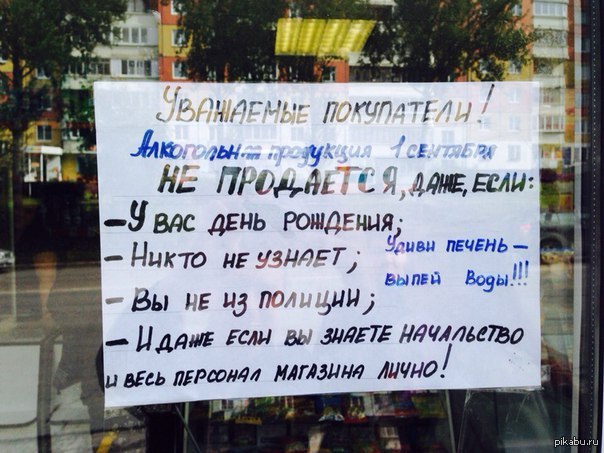 Уважаемые покупатели!
Алкогольная продукция 1 сентября
НЕ ПРОДАЕТСЯ, ДАЖЕ, ЕСЛИ:
- У ВАС ДЕНЬ РОЖДЕНИЯ;
- НИКТО НЕ УЗНАЕТ;
Удиви печень -
выпей воды!!!
- ВЫ НЕ ИЗ ПОЛИЦИИ;
- И ДАЖЕ ЕСЛИ ВЫ ЗНАЕТЕ НАЧАЛЬСТВО
И ВЕСЬ ПЕРСОНАЛ МАГАЗИНА ЛИЧНО!
pikabu.ru